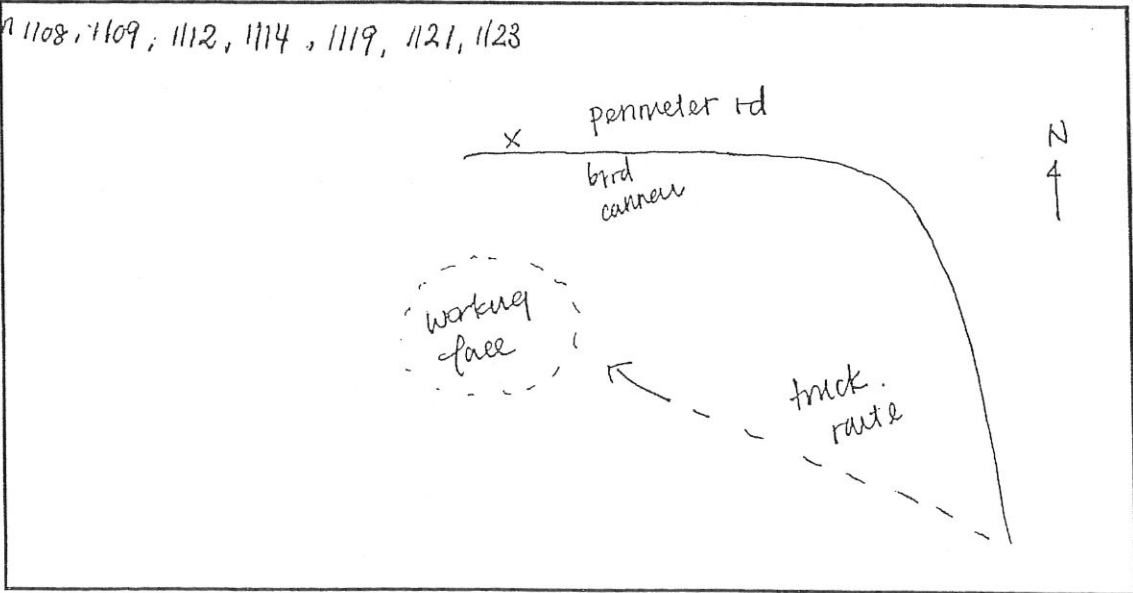 1108, 1109, 1112, 1114, 1119, 1121, 1123
perimeter rd
X
N
bird
cannon
working
face
truck.
route